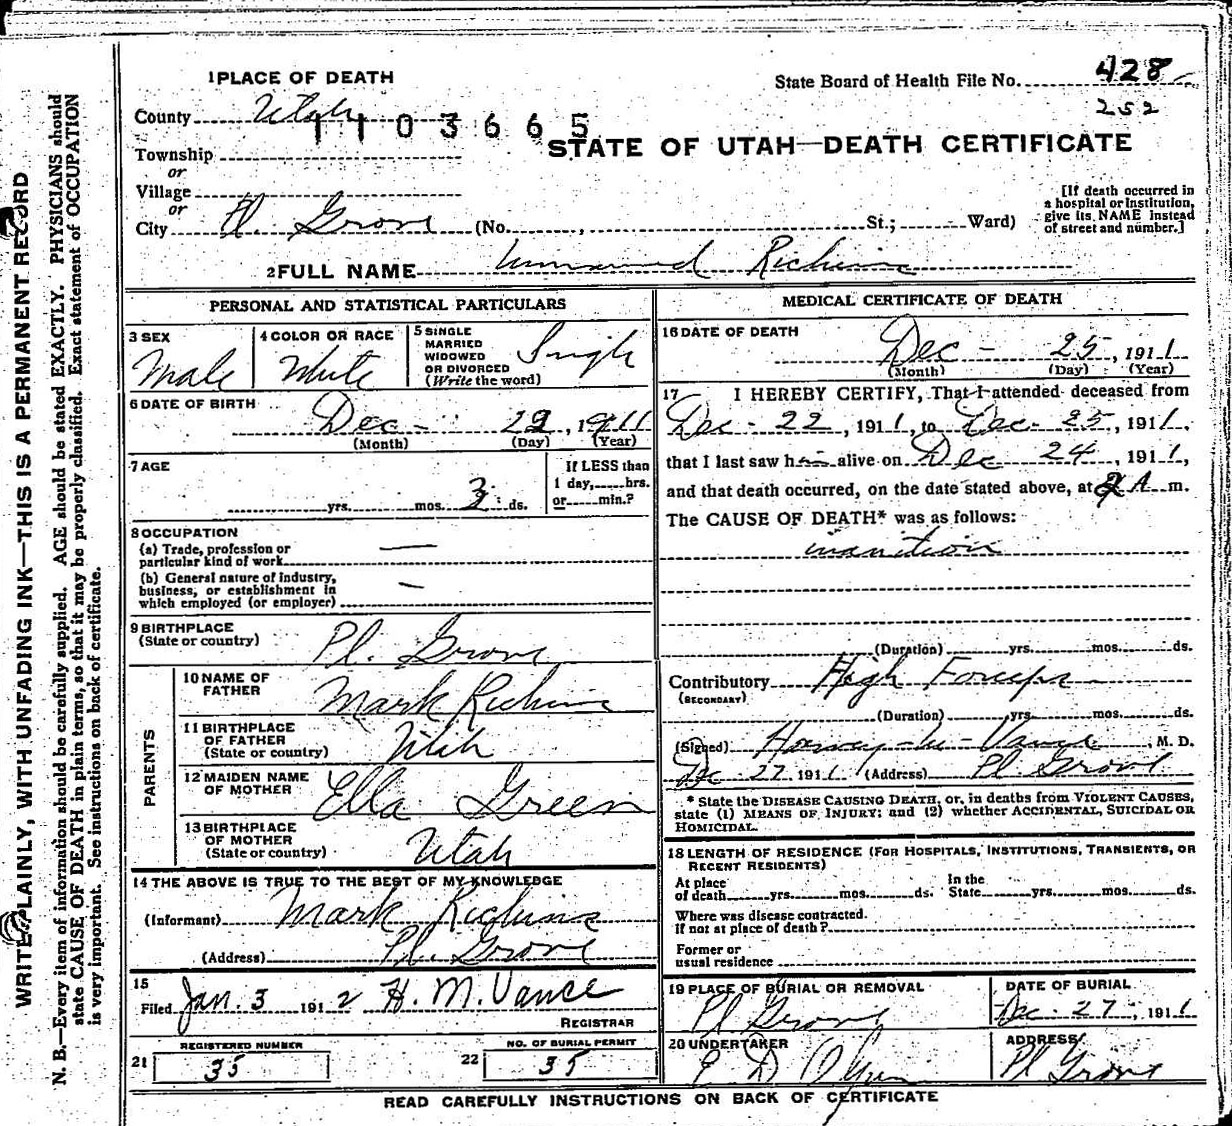 1 PLACE OF DEATH
State Board of Health File No. 428
252
County Utah
1103665
STATE OF UTAH—DEATH CERTIFICATE
Township
or
Village
or
City Pl. Grove (No. , St.; Ward)
[If death occurred in
a hospital or institution,
give its NAME instead
of street and number.]
2 FULL NAME Unnamed Richins
PERSONAL AND STATISTICAL PARTICULARS
3 SEX
Male
4 COLOR OR RACE
White
5 SINGLE
MARRIED
WIDOWED
OR DIVORCED
(Write the word)
Single
6 DATE OF BIRTH
Dec - 22, 1911
(Month) (Day) (Year)
7 AGE
yrs. mos. 3 ds.
If LESS than
1 day, hrs.
or min.?
8 OCCUPATION
(a) Trade, profession or
particular kind of work —
(b) General nature of industry,
business, or establishment in
which employed (or employer) —
9 BIRTHPLACE
(State or country) Pl. Grove
PARENTS
10 NAME OF
FATHER Mark Richins
11 BIRTHPLACE
OF FATHER
(State or country) Utah
12 MAIDEN NAME
OF MOTHER Ella Green
13 BIRTHPLACE
OF MOTHER
(State or country) Utah
14 THE ABOVE IS TRUE TO THE BEST OF MY KNOWLEDGE
(Informant) Mark Richins
(Address) Pl. Grove
15
Filed Jan. 3 1912 H. M. Vance
REGISTRAR
21 REGISTERED NUMBER
35
22 NO. OF BURIAL PERMIT
35
MEDICAL CERTIFICATE OF DEATH
16 DATE OF DEATH
Dec - 25, 1911
(Month) (Day) (Year)
17 I HEREBY CERTIFY, That I attended deceased from
Dec - 22, 1911, to Dec - 25, 1911,
that I last saw him alive on Dec 24, 1911,
and that death occurred, on the date stated above, at 2 A m.
The CAUSE OF DEATH* was as follows:
inanition
(Duration) yrs. mos. ds.
Contributory High Forceps
(SECONDARY)
(Duration) yrs. mos. ds.
(Signed) Harvey M Vance, M. D.
Dec - 27 1911 (Address) Pl. Grove
* State the DISEASE CAUSING DEATH, or, in deaths from VIOLENT CAUSES,
state (1) MEANS OF INJURY; and (2) whether ACCIDENTAL, SUICIDAL OR
HOMICIDAL.
18 LENGTH OF RESIDENCE (FOR HOSPITALS, INSTITUTIONS, TRANSIENTS, OR
RECENT RESIDENTS)
At place
of death yrs. mos. ds.
In the
State yrs. mos. ds.
Where was disease contracted.
if not at place of death?
Former or
usual residence
19 PLACE OF BURIAL OR REMOVAL
Pl Grove
DATE OF BURIAL
Dec - 27, 1911
20 UNDERTAKER
E D Olsen
ADDRESS
Pl Grove
READ CAREFULLY INSTRUCTIONS ON BACK OF CERTIFICATE
WRITE PLAINLY, WITH UNFADING INK—THIS IS A PERMANENT RECORD
N. B.—Every item of information should be carefully supplied. AGE should be stated EXACTLY. PHYSICIANS should
state CAUSE OF DEATH in plain terms, so that it may be properly classified. Exact statement of OCCUPATION
is very important. See instructions on back of certificate.